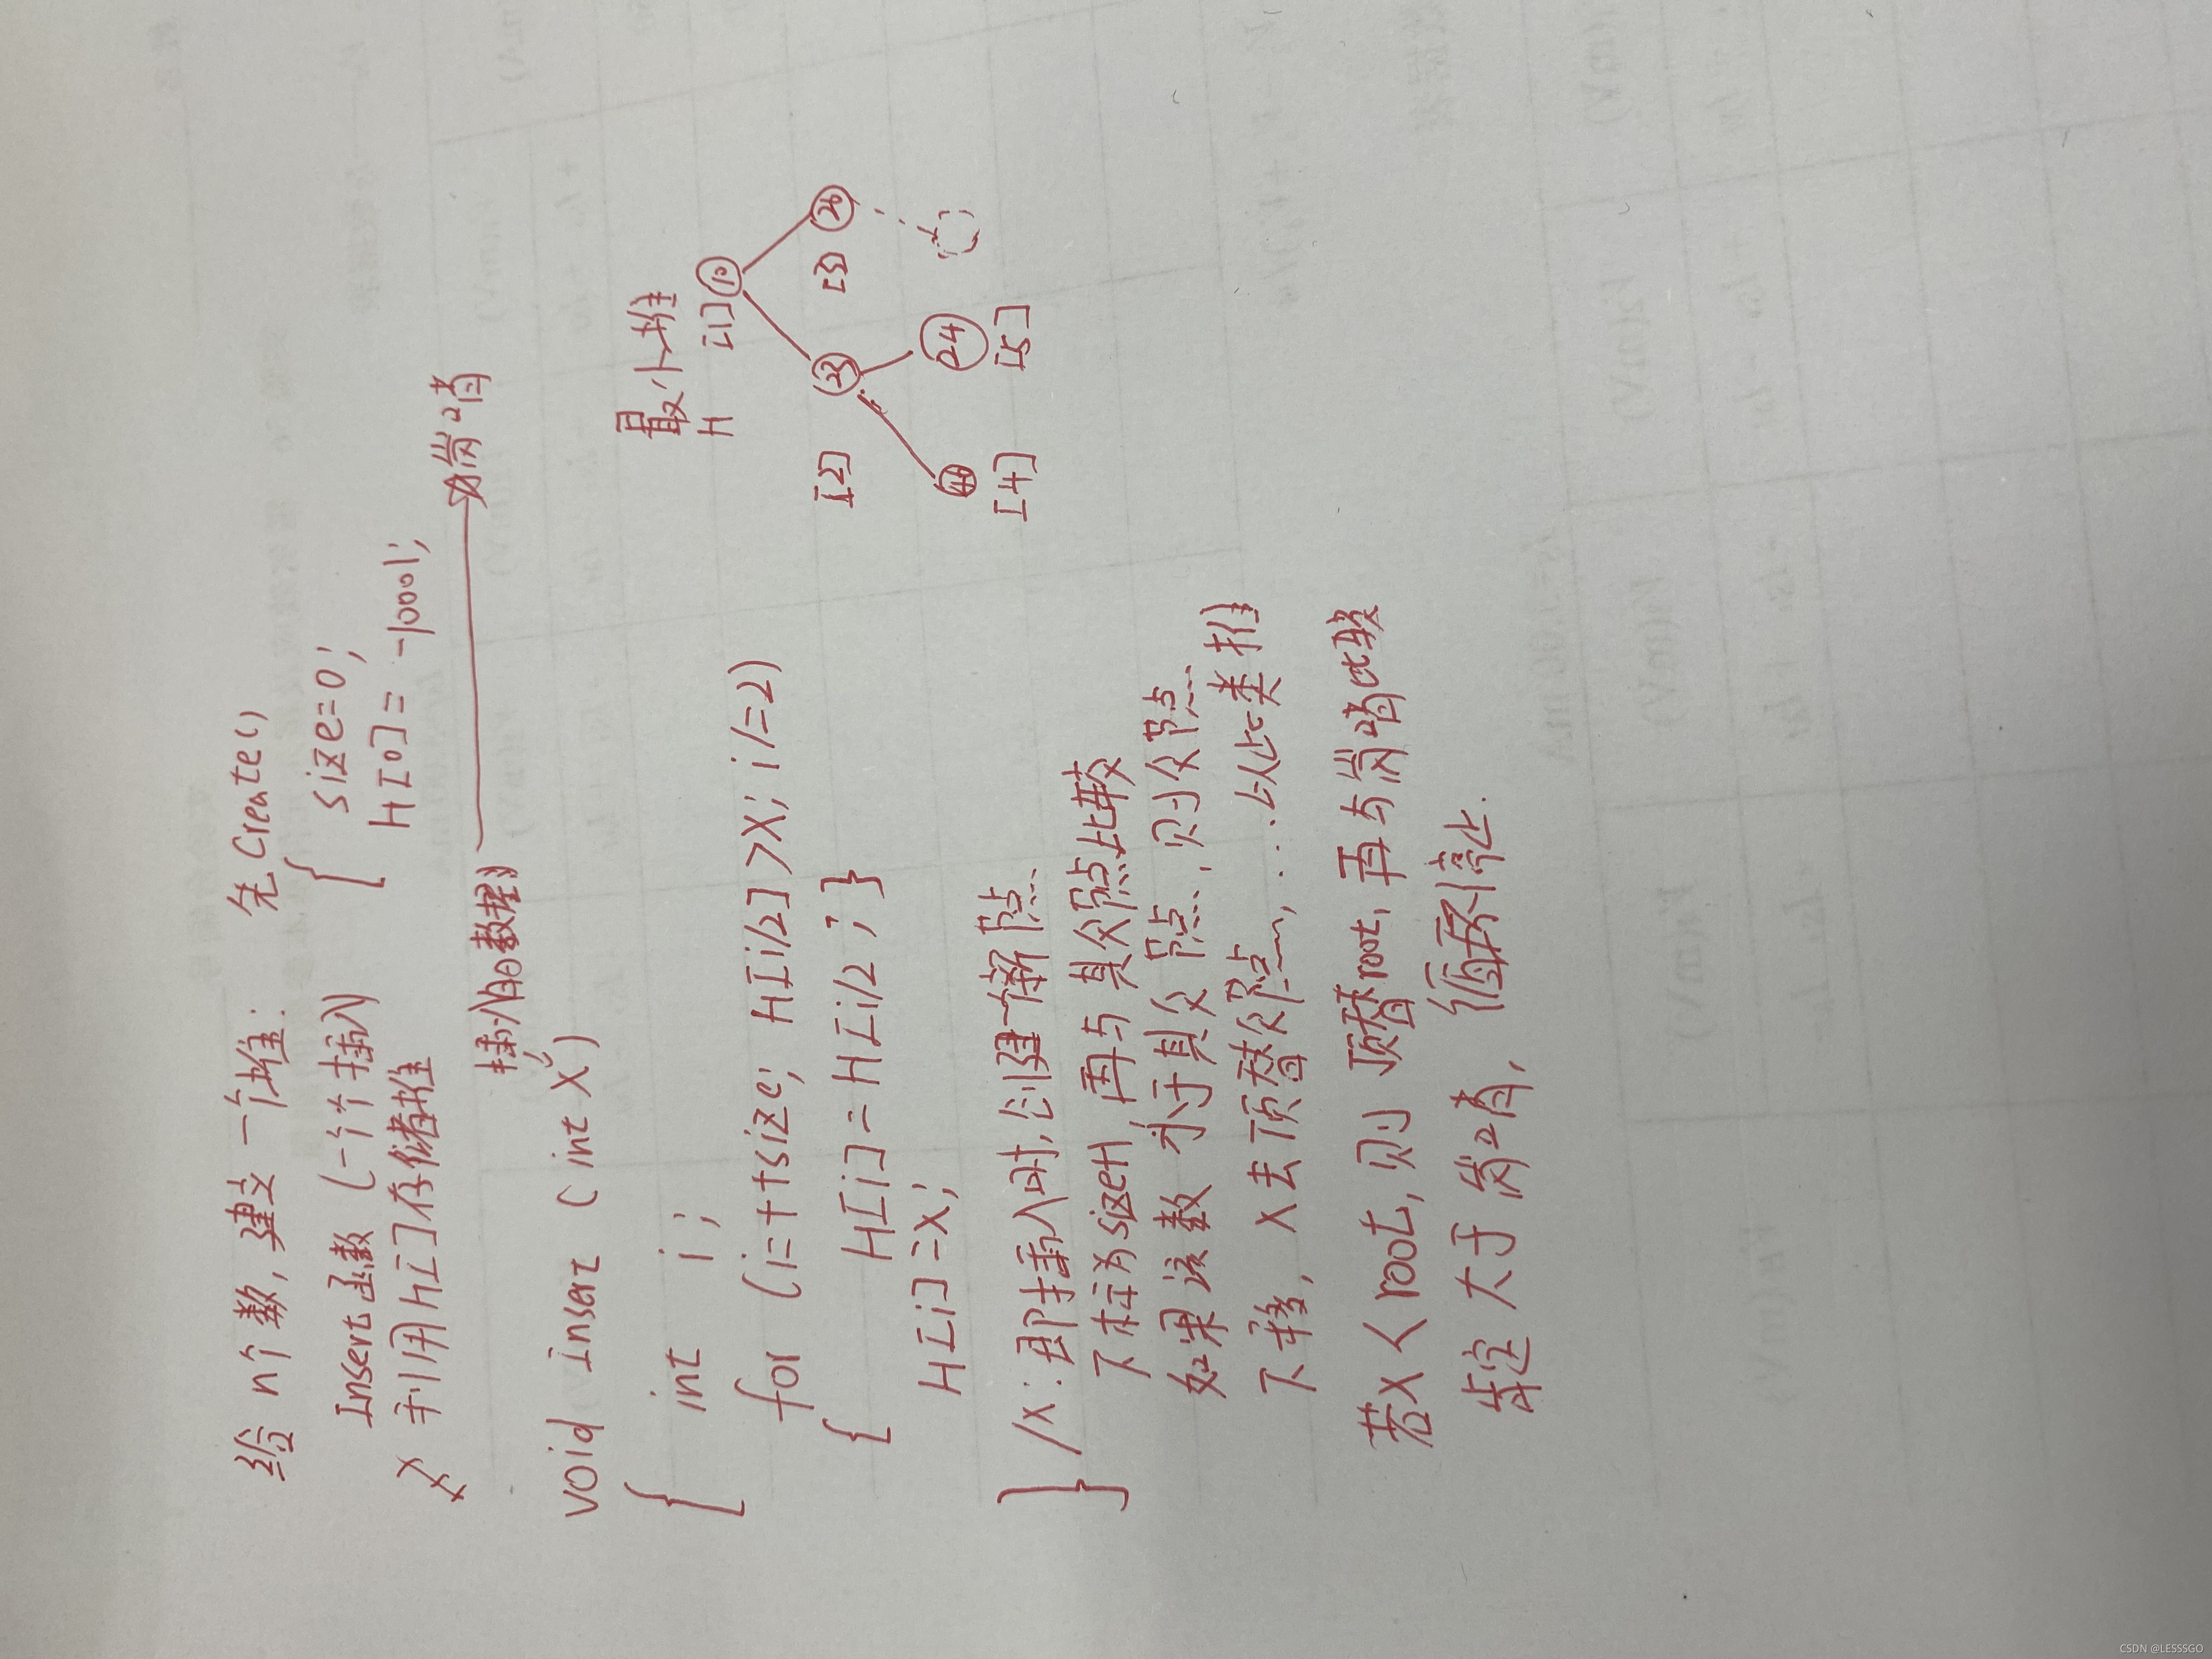 给 n个数,建立一个堆: 先 Create()
Insert函数 (一个个插入)
{ size=0;
利用H[i]存储堆
H[0] = -10001;
插入的数据
为哨兵
void Insert (int X)
{ int i;
for (i=++size; H[i/2]>X; i/=2)
{ H[i]=H[i/2]; }
H[i]=X;
} /x:即插入时,创建一个新节点
下标为size+1,再与其父节点比较
如果该数小于其父节点,则父节点
下移, X去顶替父节点,...以此类推
若X<root,则顶替root,再与哨兵比较
肯定大于哨兵, 循环停止.
最小堆
H [1] 10
[2] 23 [3] 26
24
[4] [5]
CSDN @LESSSGO